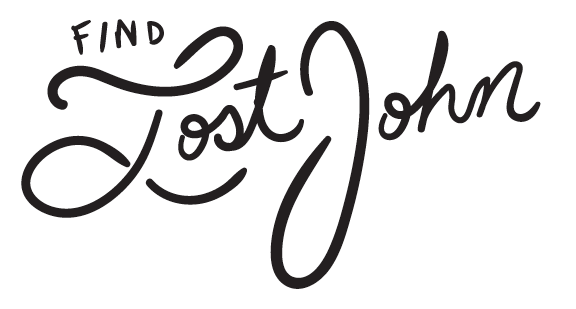 FIND
Lost John